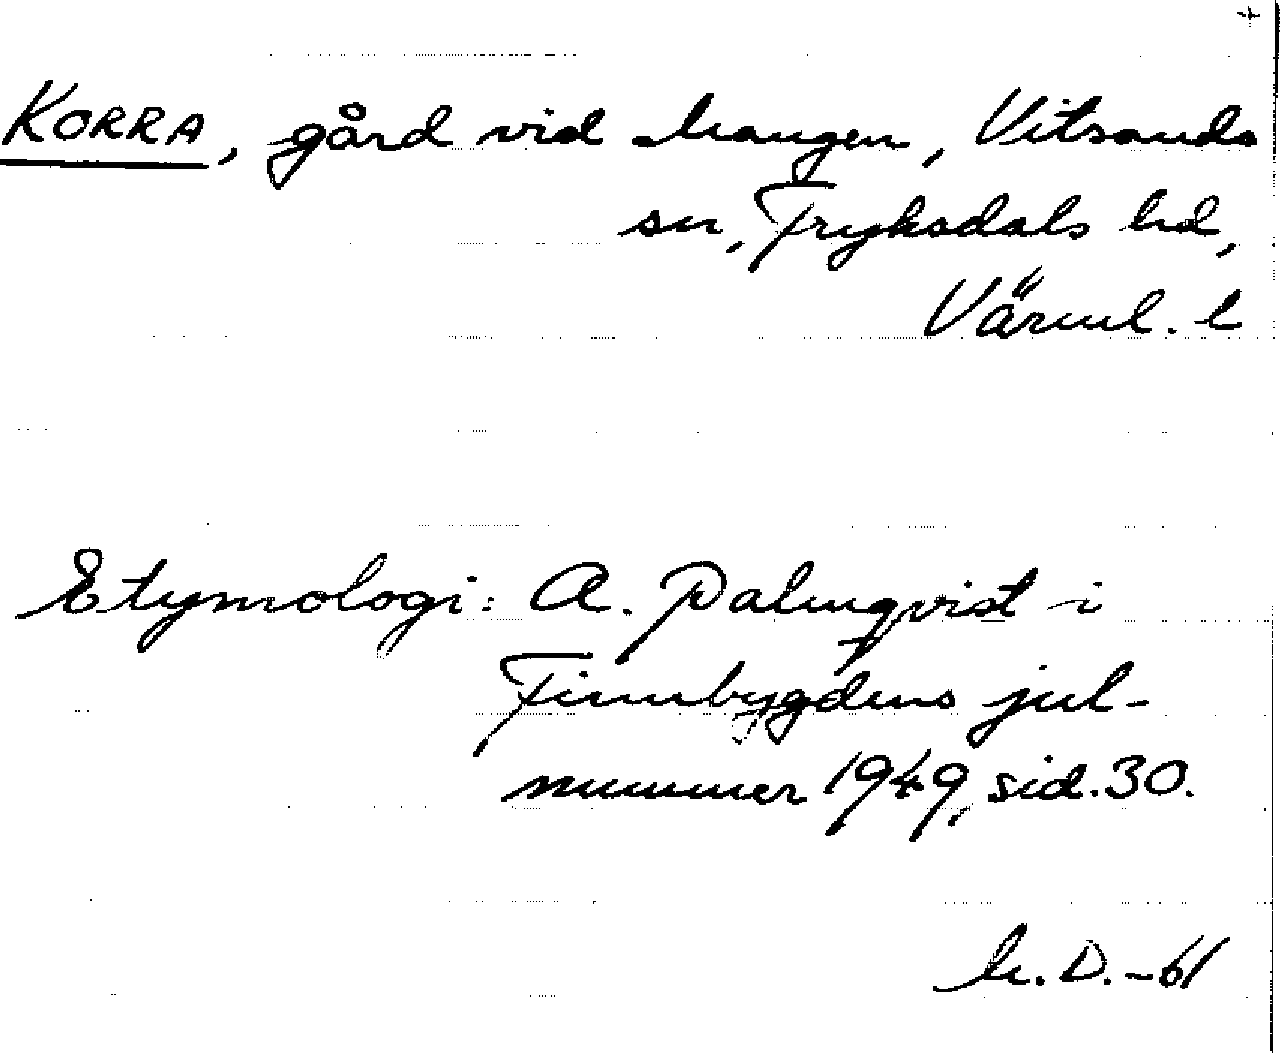 +
KORRA, gård vid Mangen, Vitsands
sn, Fryksdals hd,
Värml. l
Etymologi: A. Palmqvist i
Finnbygdens jul-
nummer 1949, sid. 30.
M. D. -61